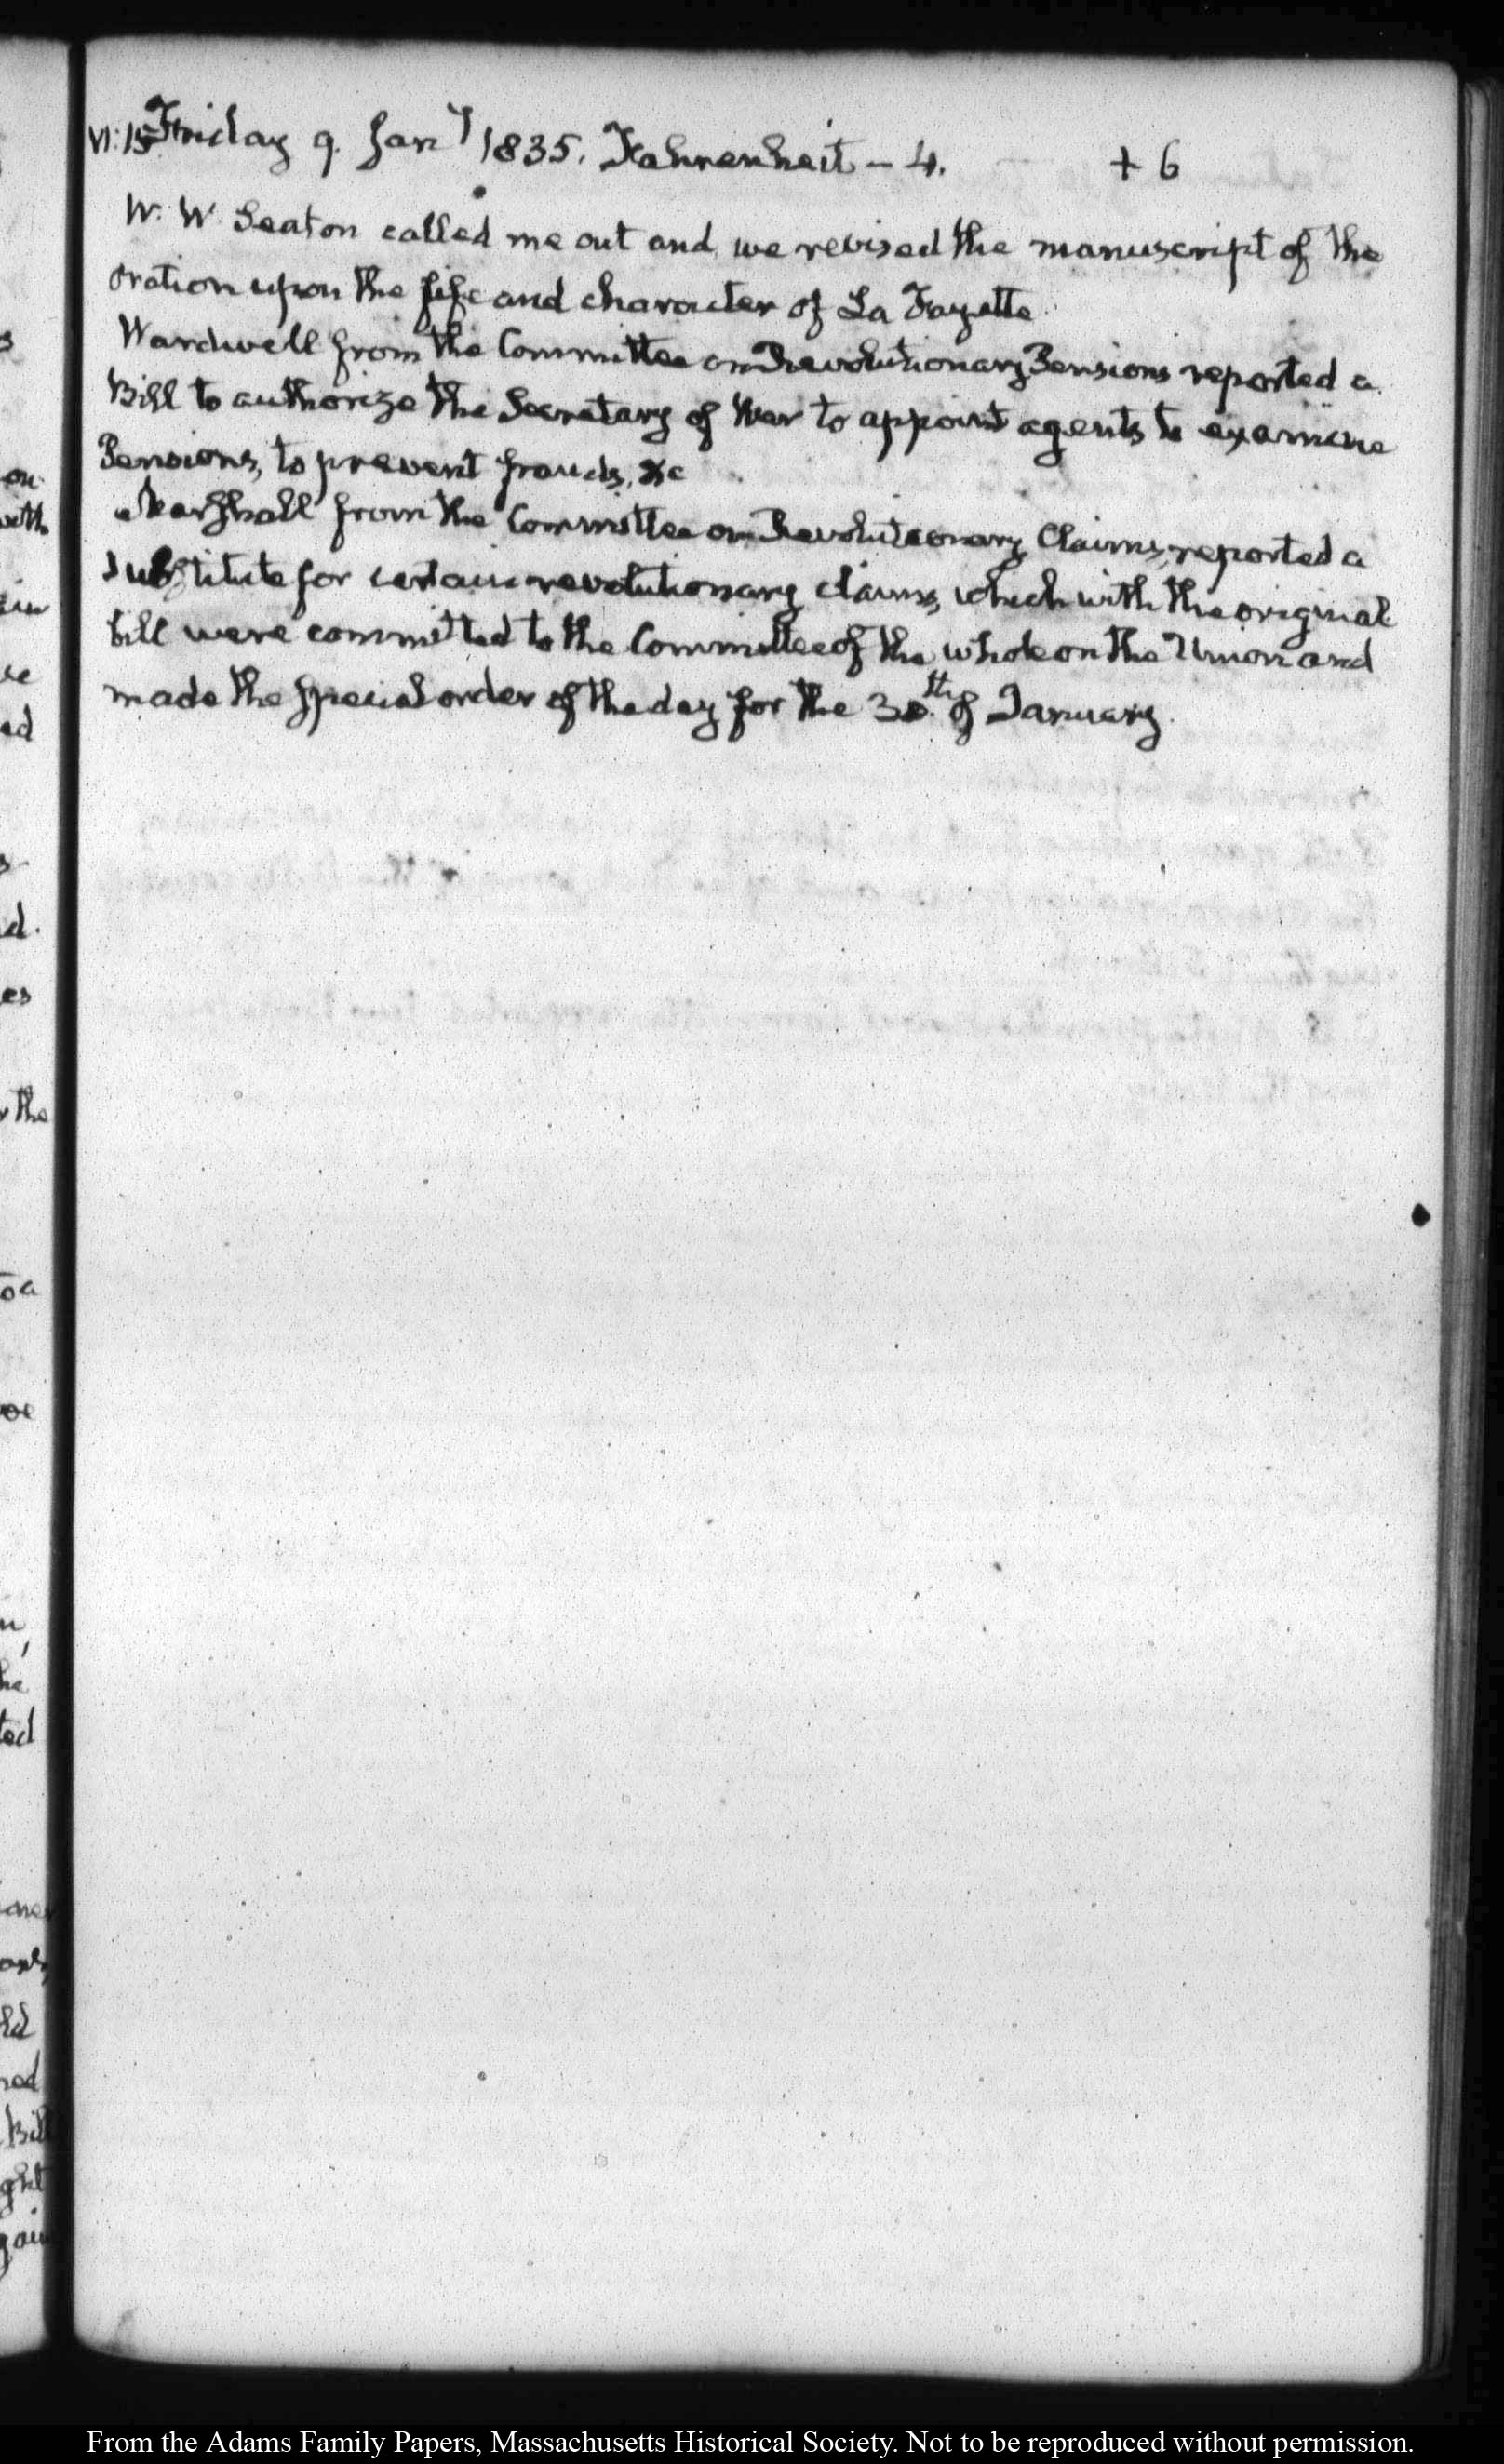 VI:15 Friday 9. Jany 1835. Fahrenheit - 4. + 6
W. W. Seaton called me out and we revised the manuscript of the
Oration upon the life and character of La Fayette.
Wardwell from the Committee on Revolutionary Pensions reported a
Bill to authorize the Secretary of War to appoint agents to examine
Pensions, to prevent frauds, &c
Marshall from the Committee on Revolutionary Claims, reported a
substitute for certain revolutionary claims, which with the original
bill were committed to the Committee of the whole on the Union and
made the special order of the day for the 30th of January.
on
with
in
re
ed
s
d.
es
the
to a
he
ted
ld
Bill
ght
From the Adams Family Papers, Massachusetts Historical Society. Not to be reproduced without permission.